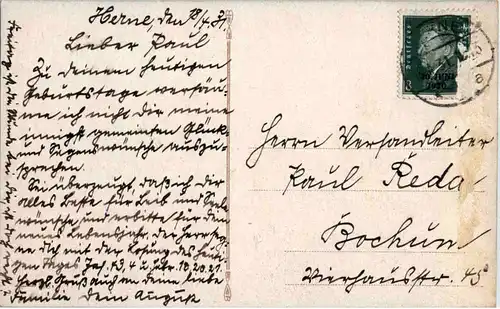 Herne, den 18/4.31
Lieber Paul
Zu deinem heutigen
Geburtstage versäu-
me ich nicht dir meine
innigst gemeinten Glück-
und Segenswünsche auszu-
sprechen.
Sei überzeugt, daß ich dir
alles Beste für Leib und Seele
wünsche und erbitte für dein
neues Lebensjahr. Der Herr seg-
ne dich mit der Losung des heuti-
gen Tages Jes. 43, 4 u. 10.20.21.
Herzl. Gruß auch an deine liebe
Familie Dein August
Deutsches
8
Herrn Versandleiter
Paul Reda
Bochum
Vierhausstr. 45